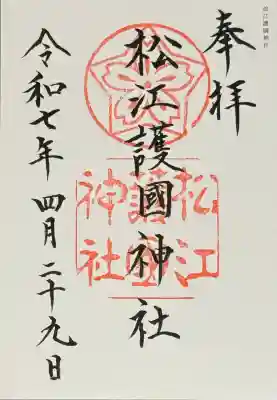 松江護國神社
奉拝
松江護國神社
松江護國神社
令和七年 四月二十九日